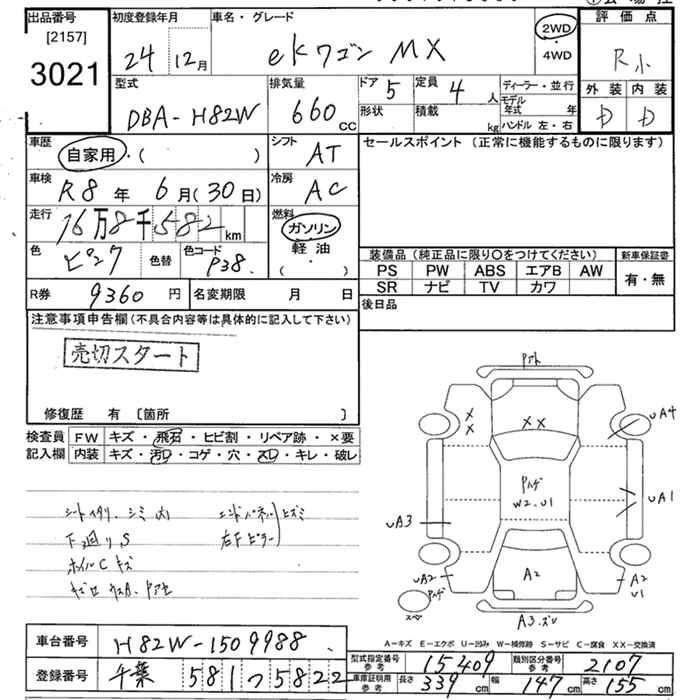 出品番号 初度登録年月 車名・グレード 2WD 評価点
[2157] 24 12月 eKワゴン MX ・ R小
3021 4WD
型式 排気量 ドア 5 定員 4人 ディーラー・並行 外装 内装
DBA-H82W 660cc 形状 積載 kg モデル年式 年 D D
ハンドル 左・右
車歴 自家用・( ) シフト AT セールスポイント(正常に機能するものに限ります)
車検 R8年 6月(30日) 冷房 AC
走行 16万8千582km 燃料 ガソリン
軽油
・( )
色 ピンク 色替 色コード P38. 装備品(純正品に限り○をつけてください) 新車保証書
PS PW ABS エアB AW 有・無
SR ナビ TV カワ
R券 9360円 名変期限 月 日 後日品
注意事項申告欄(不具合内容等は具体的に記入して下さい)
売切スタート
修復歴 有 〔箇所 〕
検査員 FW キズ・飛石・ヒビ割・リペア跡・×要
記入欄 内装 キズ・汚レ・コゲ・穴・スレ・キレ・破レ
シートヘタリ、シミ大 エンドパネル ヒズミ
下廻リS 右Fピラー
ホイルCキズ
Pアト
X X
X X
UA4
Pハゲ
W2.U1
UA1
UA3
UA2
Pハゲ
A2
A2
U1
スペア
A3.ズリ
A-キズ E-エクボ U-凹み W-補修跡 S-サビ C-腐食 XX-交換済
車台番号 H82W-1509988
型式指定番号 参考 15409 類別区分番号 参考 2107
登録番号 千葉 581つ5822
車庫証明用 参考 長さ 339cm 幅 147cm 高さ 155cm